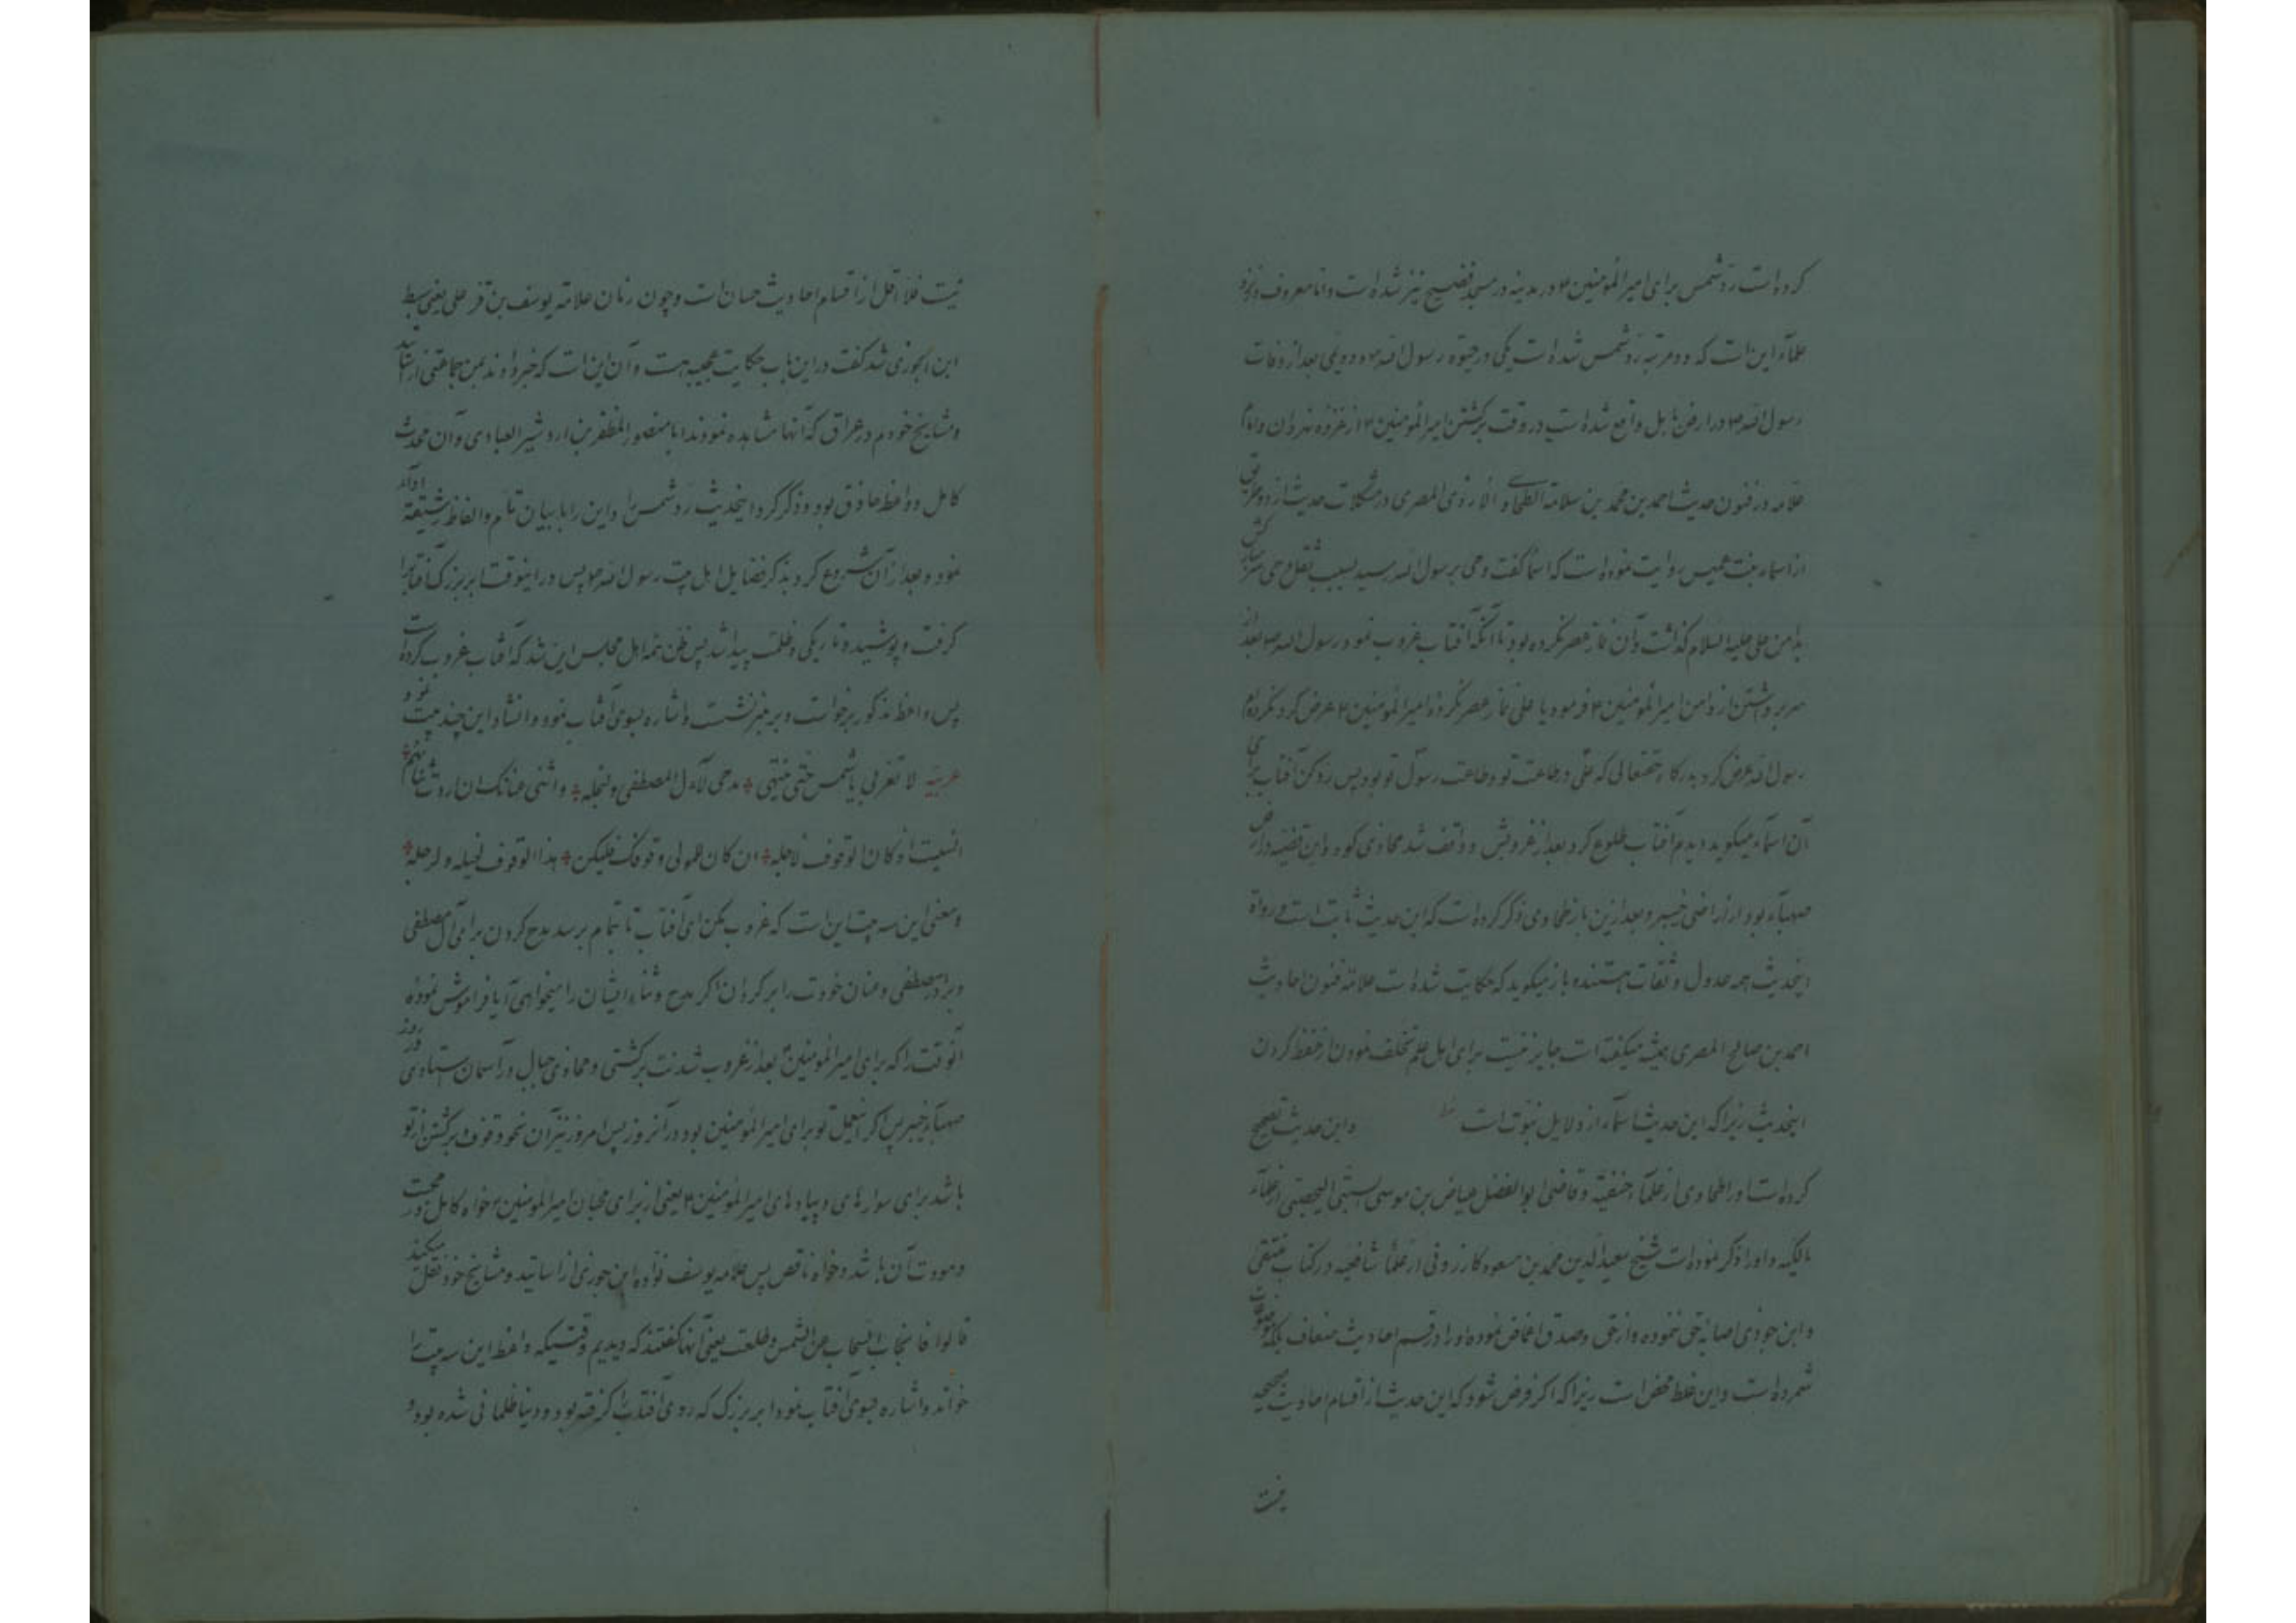 کرده است ردّ شمس برای امیرالمؤمنین۴ در مدینه در مسجد فضیح نیز شده است و اما معروف نزد
علماء این است که دو مرتبه ردّ شمس شده است یکی در حیوة رسول الله ص و دویمی بعد از وفات
رسول الله ص در ارض بابل واقع شده است در وقت برگشتن امیرالمؤمنین۴ از غزوه نهروان و امام
علامه در فنون حدیث احمد بن محمد بن سلامة الطحاوی الازدی المصری در مشکلات حدیث از دو طریق
از اسماء بنت عمیس روایت نموده است که اسما گفت وحی برسول الله رسید بسبب ثقل وحی سر مبارکش
بدامن علی علیه السلام گذاشت و آن نماز عصر نکرده بود تا آنکه آفتاب غروب نمود رسول الله ص بعد از
سر برداشتن از دامن امیرالمؤمنین۴ فرمود یا علی نماز عصر کرده امیرالمؤمنین۴ عرض کرد نکرده ام
رسول الله عرض کرد بدرگاه حقتعالی که علی در طاعت تو و طاعت رسول تو بود پس رد کن آفتاب برای
آن اسماء میگوید دیدم آفتاب طلوع کرد بعد از غروبش و واقف شد محاذی کوه و این قضیه در ارض
صهبآء بود از اراضی خیبر و بعد ازین باز طحاوی ذکر کرده است که این حدیث ثابت است و رواة
اینحدیث همه عدول و ثقات هستند و باز میگوید که حکایت شده است علامه فنون احادیث
احمد بن صالح المصری همیشه میگفته است جایز نیست برای اهل علم تخلف نمودن از حفظ کردن
اینحدیث زیرا که این حدیث اسمآء از دلایل نبوّت است و این حدیث تصحیح
کرده است او را طحاوی از علمآء حنفیّه و قاضی ابوالفضل عیاض بن موسی السبتی الیحصبی از علمآء
مالکیه و او را ذکر نموده است شیخ سعید الدین محمد بن مسعود کازرونی از علمآ شافعیه در کتاب منتقی
و ابن جوزی اصابه حق ننموده و از حق و صدق اغماض نموده او را در قسم احادیث ضعاف بلکه موضوعات
شمرده است و این غلط محض است زیرا که اگر فرض شود که این حدیث از اقسام احادیث صحیحه
نیست
نیست فلا اقل از اقسام احادیث حسان است و چون زمان علامه یوسف بن قزعلی یعنی سبط
ابن الجوزی شد گفت در این باب حکایت عجیبه هست و آن این است که خبر دادند بمن جماعتی از اساتید
و مشایخ خودم در عراق که آنها مشاهده نمودند ابا منصور المظفر بن اردشیر العبادی و آن محدث
کامل و واعظ حاذق بود و ذکر کرد اینحدیث ردّ شمس را و این را با بیان تام و الفاظ رشیقه ادا
نمود و بعد از آن شروع کرد بذکر فضایل اهل بیت رسول الله ص پس در اینوقت ابر بزرگ آفتاب را
گرفت و پوشید و تاریکی و ظلمت پیدا شد پس ظن همه اهل مجلس این شد که آفتاب غروب کرده است
پس واعظ مذکور برخواست و بر منبر نشست و اشاره بسوی آفتاب نمود و انشاد این چند بیت نمود
عربیه لا تغربی یا شمس حتی ینتهی * مدحی لآل المصطفی و لنجله * واثنی عنانک ان اردت ثنائهم *
انسیت اذ کان الوقوف لاجله * ان کان للمولی وقوفک فلیکن * هذا الوقوف لخیله و لرجله *
و معنی این سه بیت این است که غروب مکن ای آفتاب تا بتمام برسد مدح کردن برای آل مصطفی
و برادر مصطفی و عنان خودت را برگردان اگر مدح و ثناء ایشان را میخواهی آیا فراموش نموده
آنوقت را که برای امیرالمؤمنین۴ بعد از غروب شدنت برگشتی و محاذی جبال در آسمان ستادی در روز
صهبآء خیبر پس اگر اینعمل تو برای امیرالمؤمنین بود در آنروز پس امروز نیز آن نحو وقوف و برگشتن از تو
باشد برای سوارهای و پیادهای امیرالمؤمنین۴ یعنی از برای محبان امیرالمؤمنین۴ خواه کامل در محبت
و مودت آن باشد و خواه ناقص پس علامه یوسف نواده ابن جوزی از اساتید و مشایخ خود نقل میکند
قالوا فانجاب السحاب عن الشمس و طلعت یعنی آنها گفتند که دیدیم وقتیکه واعظ این سه بیت را
خواند و اشاره بسوی آفتاب نمود ابر بزرگ که روی آفتاب را گرفته بود و دنیا ظلمانی شده بود و